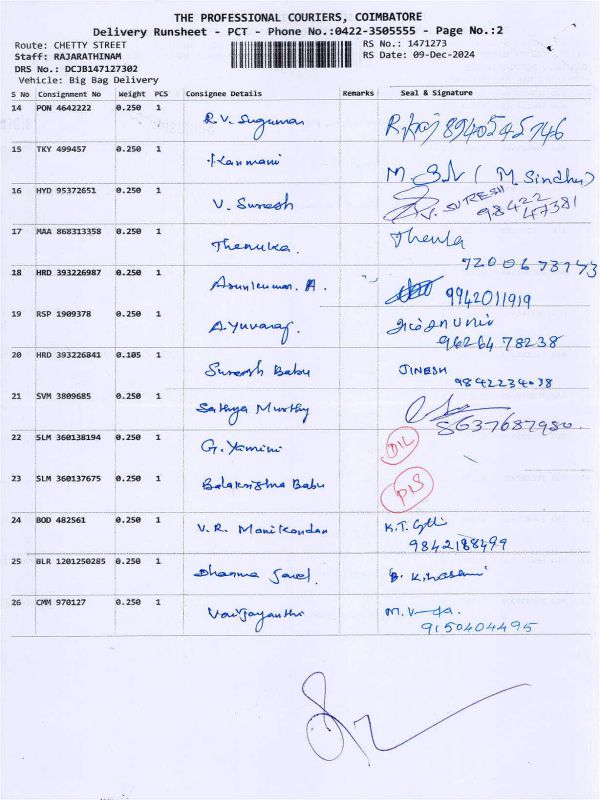 THE PROFESSIONAL COURIERS, COIMBATORE
Delivery Runsheet - PCT - Phone No.:0422-3505555 - Page No.:2
Route: CHETTY STREET RS No.: 1471273
Staff: RAJARATHINAM RS Date: 09-Dec-2024
DRS No.: DCJB147127302
Vehicle: Big Bag Delivery
S No Consignment No Weight PCS Consignee Details Remarks Seal & Signature
14 PON 4642222 0.250 1 R.V. Sugumar 8940545746
15 TKY 499457 0.250 1 Kanmani M. (M. Sindhu)
16 HYD 95372651 0.250 1 V. Suresh V. SURESH
98422
47381
17 MAA 868313358 0.250 1 Thenuka. Thenla
7200673173
18 HRD 393226987 0.250 1 Arunkumar. A. 9942011919
19 RSP 1909378 0.250 1 A. Yuvaraj.
96264 78238
20 HRD 393226841 0.105 1 Suresh Babu JINESH
9842234038
21 SVM 3809685 0.250 1 Sathya Murthy
8637687980
22 SLM 360138194 0.250 1 G. Yamini D/L
23 SLM 360137675 0.250 1 Balakrishna Babu
24 BOD 482561 0.250 1 V. R. Manikandan K.T.
9842188499
25 BLR 1201250285 0.250 1 Dhanma B.
26 CMM 970127 0.250 1 Vaijayanthi M.
9150404495